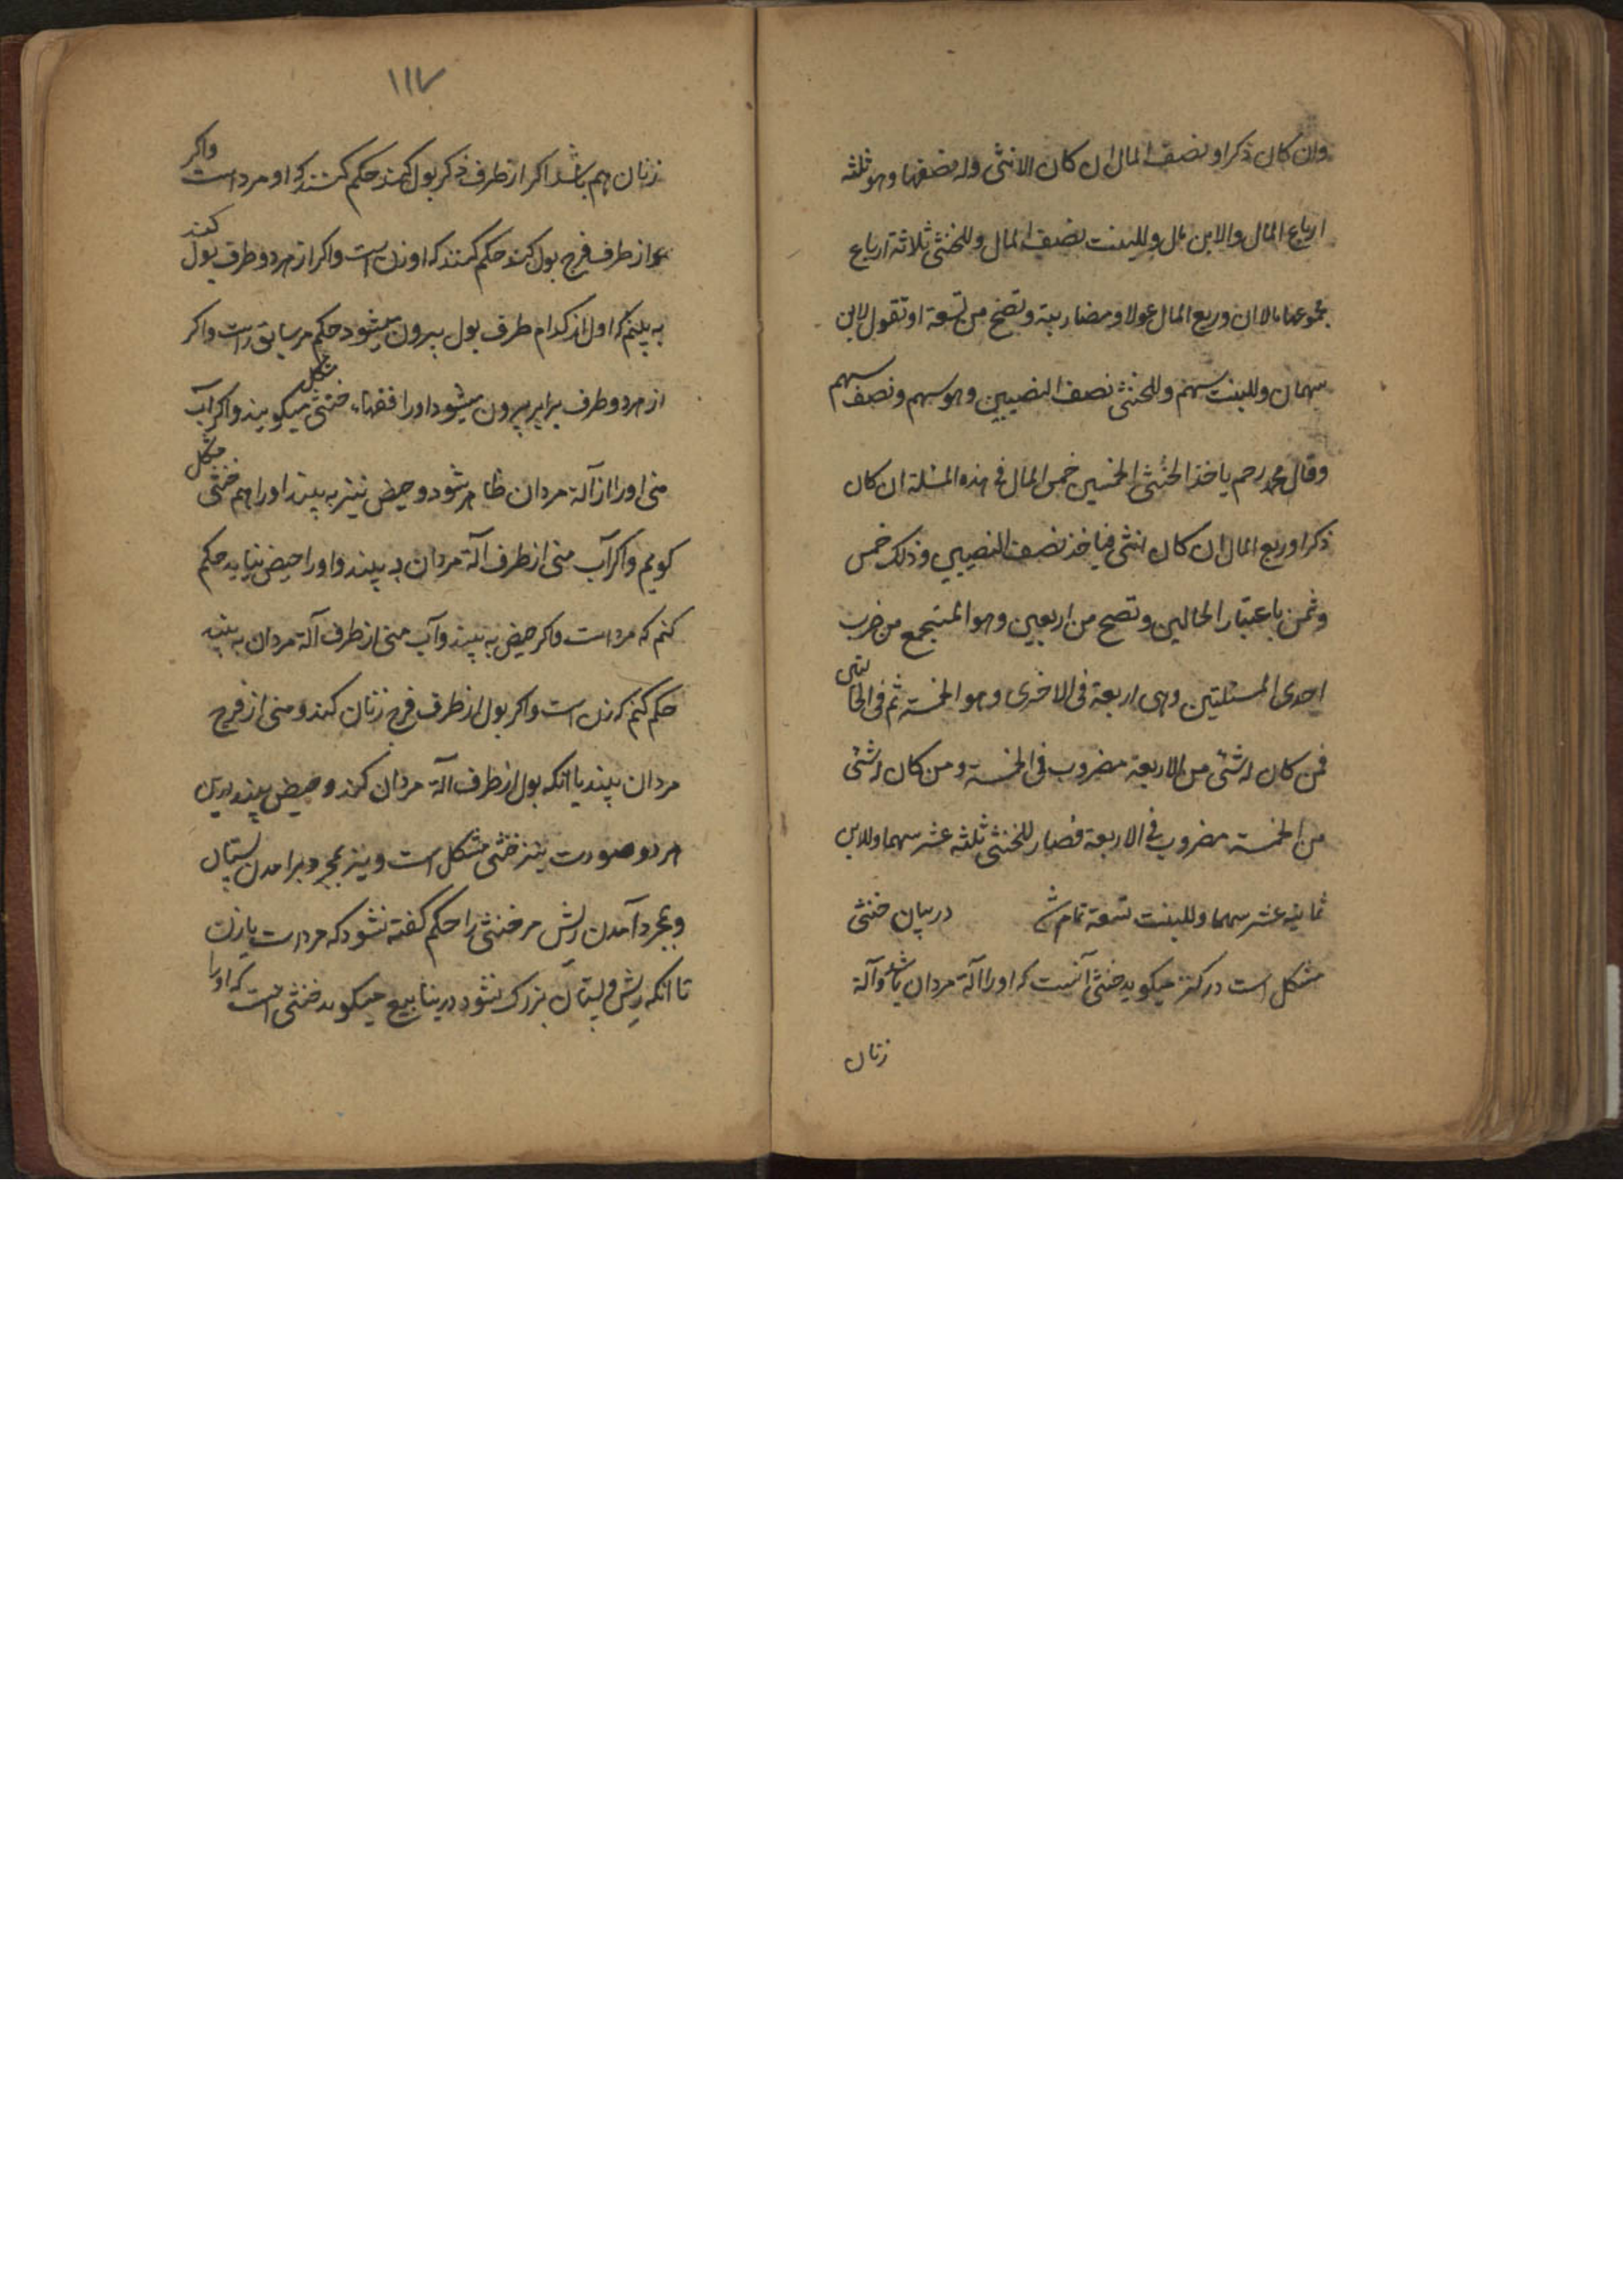 وان کان ذکرا و نصف المال ان کان الانثی وله نصفها وهو ثلثه
ارباع المال والابن مال وللبنت نصف المال وللخنثی ثلاثة ارباع
مجموعها مالان وربع المال عولا ومضاربة وتصح من تسعة او تقول لابن
سهمان وللبنت سهم وللخنثی نصف النصیبین وهو سهم ونصف سهم
وقال محمد رحم یاخذ الخنثی الخمسین خمس المال فی هذه المسئلة ان کان
ذکرا وربع المال ان کان انثی فیاخذ نصف النصیبین وذلک خمس
وثمن باعتبار الحالین وتصح من اربعین وهو المتجمع من ضرب
احدی المسئلتین وهی اربعة فی الاخری وهو الخمسة ثم فی الحالتین
فمن کان له شئی من الاربعة مضروب فی الخمسة ومن کان له شئی
من الخمسة مضروب فی الاربعة فصار للخنثی ثلثه عشر سهما وللابن
ثمانیه عشر سهما وللبنت تسعة تمام شد در بیان خنثی
مشکل است در کنز میکوید خنثی آنست که او را آلة مردان باشد وآلة
زنان
۱۱۷
زنان هم باشد اکر از طرف ذکر بول کند حکم کنند که او مرد است واکر
از طرف فرج بول کند حکم کنند که او زن است واکر از هر دو طرف بول کند
به بینم که اول از کدام طرف بول بیرون میشود حکم مر سابق راست واکر
از هر دو طرف برابر بیرون میشود او را فقهاء خنثی مشکل میکویند واکر آب
منی او را از آلة مردان ظاهر شود وحیض نیز به بیند او را هم خنثی مشکل
کویم واکر آب منی از طرف آلة مردان به بیند واو را حیض نیاید حکم
کنم که مرد است واکر حیض به بیند وآب منی از طرف آلة مردان نه بیند
حکم کنم که زن است واکر بول از طرف فرج زنان کند ومنی از فرج
مردان بیند یا انکه بول از طرف آلة مردان کند وحیض بیند درین
هر دو صورت نیز خنثی مشکل است ونیز بمجرد برامدن پستان
وبمجرد آمدن ریش مر خنثی را حکم کفته نشود که مرد است یا زن
تا انکه ریش وپستان بزرک نشود در ینابیع میکوید خنثی است که او را